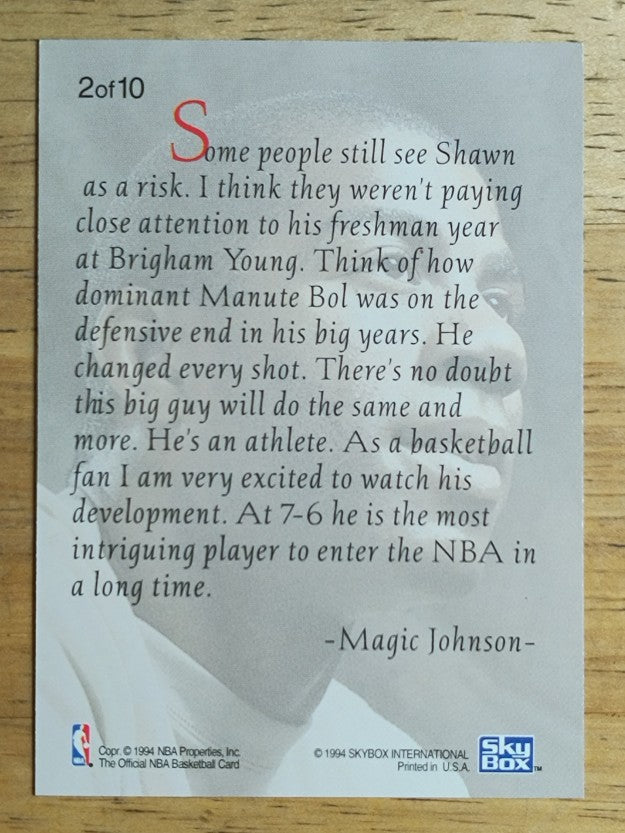 2of10
Some people still see Shawn
as a risk. I think they weren't paying
close attention to his freshman year
at Brigham Young. Think of how
dominant Manute Bol was on the
defensive end in his big years. He
changed every shot. There's no doubt
this big guy will do the same and
more. He's an athlete. As a basketball
fan I am very excited to watch his
development. At 7-6 he is the most
intriguing player to enter the NBA in
a long time.
-Magic Johnson-
NBA
Copr. © 1994 NBA Properties, Inc.
The Official NBA Basketball Card
© 1994 SKYBOX INTERNATIONAL
Printed in U.S.A.
Sky
BOX™